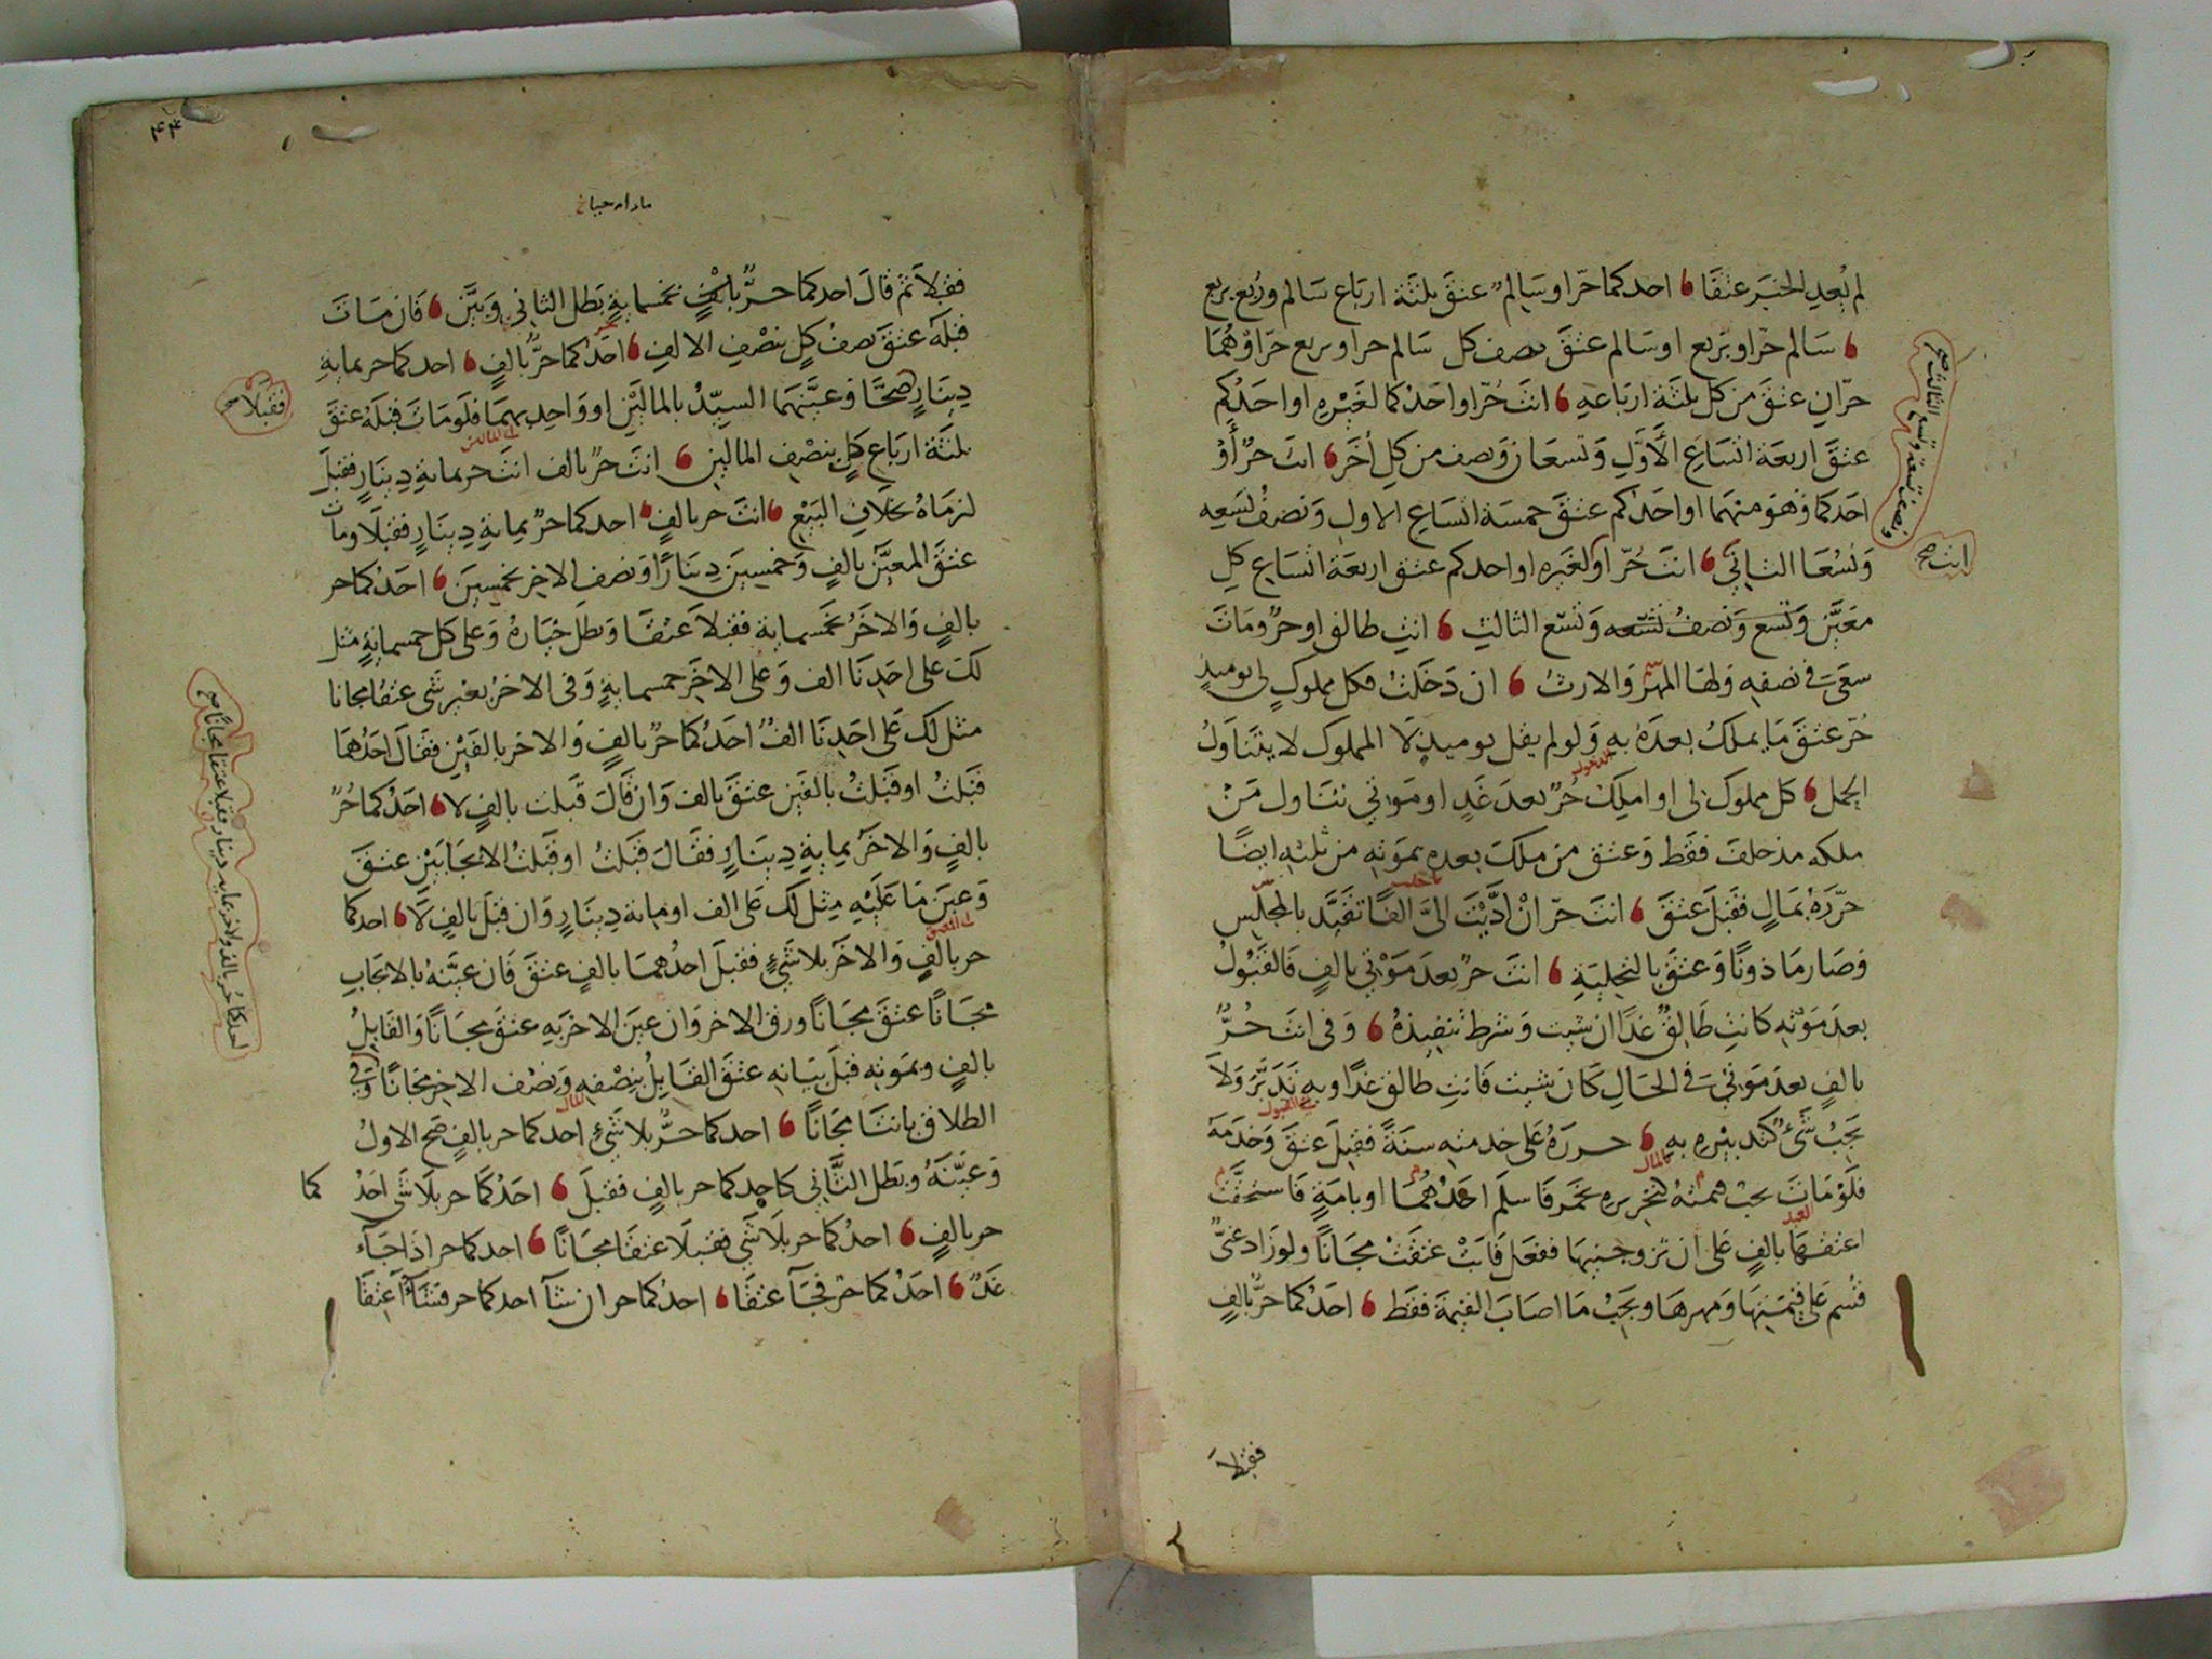 لم يُعدِ الخبَر عتقَا احدكما حرّ او سَالم عتقَ ثلثة ارباع سَالم وربع بزيع
سَالم حرّ او بَزيع او سَالم عتقَ نصف كل سَالم حر او بزيع حرَ اوْ هُمَا
حرّانِ عتقَ من كل ثلثة ارباعهِ انتَ حُرّ او احَدكما لغَيْرهِ او احَدُكم
عتقَ اربعَة اتسَاعِ الأَوَّلِ وَتسعَان وَنصف من كلِ أخَر انتَ حرٌ أَوْ
احَدكما وَهوَ منهمَا او احَدُكم عتقَ خمسَة اتسَاعِ الاول وَنصفُ تسَعِه
وَتُسْعَا الثاني انتَ حُرّ او لغَيره او احدكم عتق اربعَة اتسَاع كلِ
معَيَّن وَتسع وَنصفُ تسّعه وَتسّع الثالثِ انتِ طالق او حرٌ ومَاتَ
سعَى في نصفهِ وَلهَا المهرُ وَالارثُ ان دَخَلتُ فكل مملوكٍ لى يوميذٍ
حُرّ عتقَ مَا يملكُ بعدَهُ بهِ وَلو لم يقل يوميذٍ لَا المملوك لا يتَنَاولُ
الحمل كل مملوكٍ لى او املِكُ حُرٌ بعدَ غَدٍ او مَوتي تتنَاول مَنْ
ملكه مذ حلفَ فقَط وَعتق من ملكَ بعده بموَتهِ من ثلثهِ ايضًا
حرّرَهُ بمَالٍ فقَبلَ عتقَ انتَ حرّ انْ ادَّيْتَ الىَّ الفًا تقيَّد بالمجلِس
وَصَار مَاذونًا وَعتقَ بالتخليَةِ انتَ حرٌ بعدَ مَوْتي بالفٍ فَالقَبُولُ
بعدَ مَوْتهِ كانتِ طَالِقٌ غدًا ان شيت وَشرط تنفِيذهُ وَفى انتَ حُرٌّ
بالفٍ بعدَ مَوتي فى الحَالِ كَان شيت فَانتِ طالق غدًا وبهِ تَدَبَّرَ وَلَا
يَجَبُ شَئٌ كتدبيْره بهِ حررَهُ عَلى خدمتهِ سنَةً فقبِلَ عتقَ وَخدَمهَ
فلَوْ مَاتَ تجبْ قيمتهُ لتحريره بخَمر فَاسلَم احَدُهُمَا او بامَةٍ فَاستحقَّت
اعتقهَا بالفٍ عَلى ان تزوجنيهَا ففعَل فَابَتْ عتقَتْ مجَانًا ولو زَاد عنىِّ
قُسم عَلى قيمَتهَا وَمهرهَا ويجَبُ مَا اصَابَ القيمَة فقَط احَدُكما حرٌ بالفٍ
الثالث صح
ونصف تسعه وتسع
انت صح
فقبلا
٤٤
فقبلاَ ثم قالَ احدكما حرٌّ بخمسمايةٍ بَطلِ الثاني وَبَيَّن فَان مَاتَ
قبلَهُ عتقَ نصفُ كلٍ بنصْفِ الالفِ احَدُكما حرٌّ بالفٍ احدكما حر بمايةِ
دِينَارٍ صحَّا وَعيَّنهمَا السيّدُ بالماليْنِ او وَاحِدٍ بهمَا فلَو مَاتَ قبلَهُ عتقَ
ثلثَة ارباع كلٍ بنصْفِ المالينِ انتَ حرٌ بالف انتَ حر بمايةِ دِينَارٍ فقبلَ
لزمَاهُ بخلافِ البَيْعِ انتَ حر بالفٍ احدكما حرٌ بمايةِ دِينَارٍ فقبلَا وماتَ
عتقَ المعيَّن بالفٍ وَخمسِينَ دِينَارًا وَنصف الاخر بخمسِينَ احَدُكما حر
بالفٍ وَالاخَرُ بخَمسماية فقبلاَ عَتقَا وَبطلَ خيَارهُ وَعلى كل خمسمايةٍ مثل
لكَ على احَدِنَا الف وَعَلى الاخَر خمسمايةٍ وَفى الاخرُ بغيرِ شَى عتقَا مجانا
مثل لكَ عَلى احَدِنَا الفٌ احَدُكما حرٌ بالفٍ وَالاخر بالفَيْنِ فقَالَ احَدُهمَا
قَبَلتُ او قَبَلتُ بالفَين عتقَ بالف وَان قَالَ قَبلت بالفٍ لا احَدُكما حُرٌ
بالفٍ وَالاخَر بمايةِ دِينَارٍ فقَالَ قَبَلتُ او قَبلتُ الايجَابَيْنِ عتقَ
وَعينَ مَا عَلَيْهِ مثل لكَ عَلى الف او ماية دِينَارٍ وَان قبلَ بالفٍ لَا احدكما
حر بالفٍ وَالاخَر بلا شَئٍ فقبلَ احدُهمَا بالفٍ عتقَ فَان عيَّنهُ بالايجَابِ
مجَانًا عتقَ مجَانًا ورق الاخر وَان عينَ الاخرَ بهِ عتقَ مجَانًا وَالقَابِلُ
بالفٍ وبمَوتهِ قبْلَ بيَانه عتقَ القَابِلُ بنِصْفهِ وَنصْف الاخر مجَانًا وَفى
الطلاق بانتَا مجَانًا احدكما حرٌّ بلا شَئٍ احدكما حر بالفٍ صَح الاولُ
وَعَيَّنَهُ وبطَل الثَّاني كاحدكما حر بالفٍ فقبلَ احَدُكما حر بلَا شَى احَدُكما
حر بالفٍ احدُكما حر بلَا شَى فقبلَا عتقَا مجَانًا احدكما حر اذَا جَآء
غَدٌ احَدُكما حرٌ فجَآ عتقَا احدُكما حر ان شآ احدكما حر فشَآ عتِقَا
فقبلا صح
احدكما حر بالف والاخر بمايه دينار فقبلا عتقا مجانًا صح